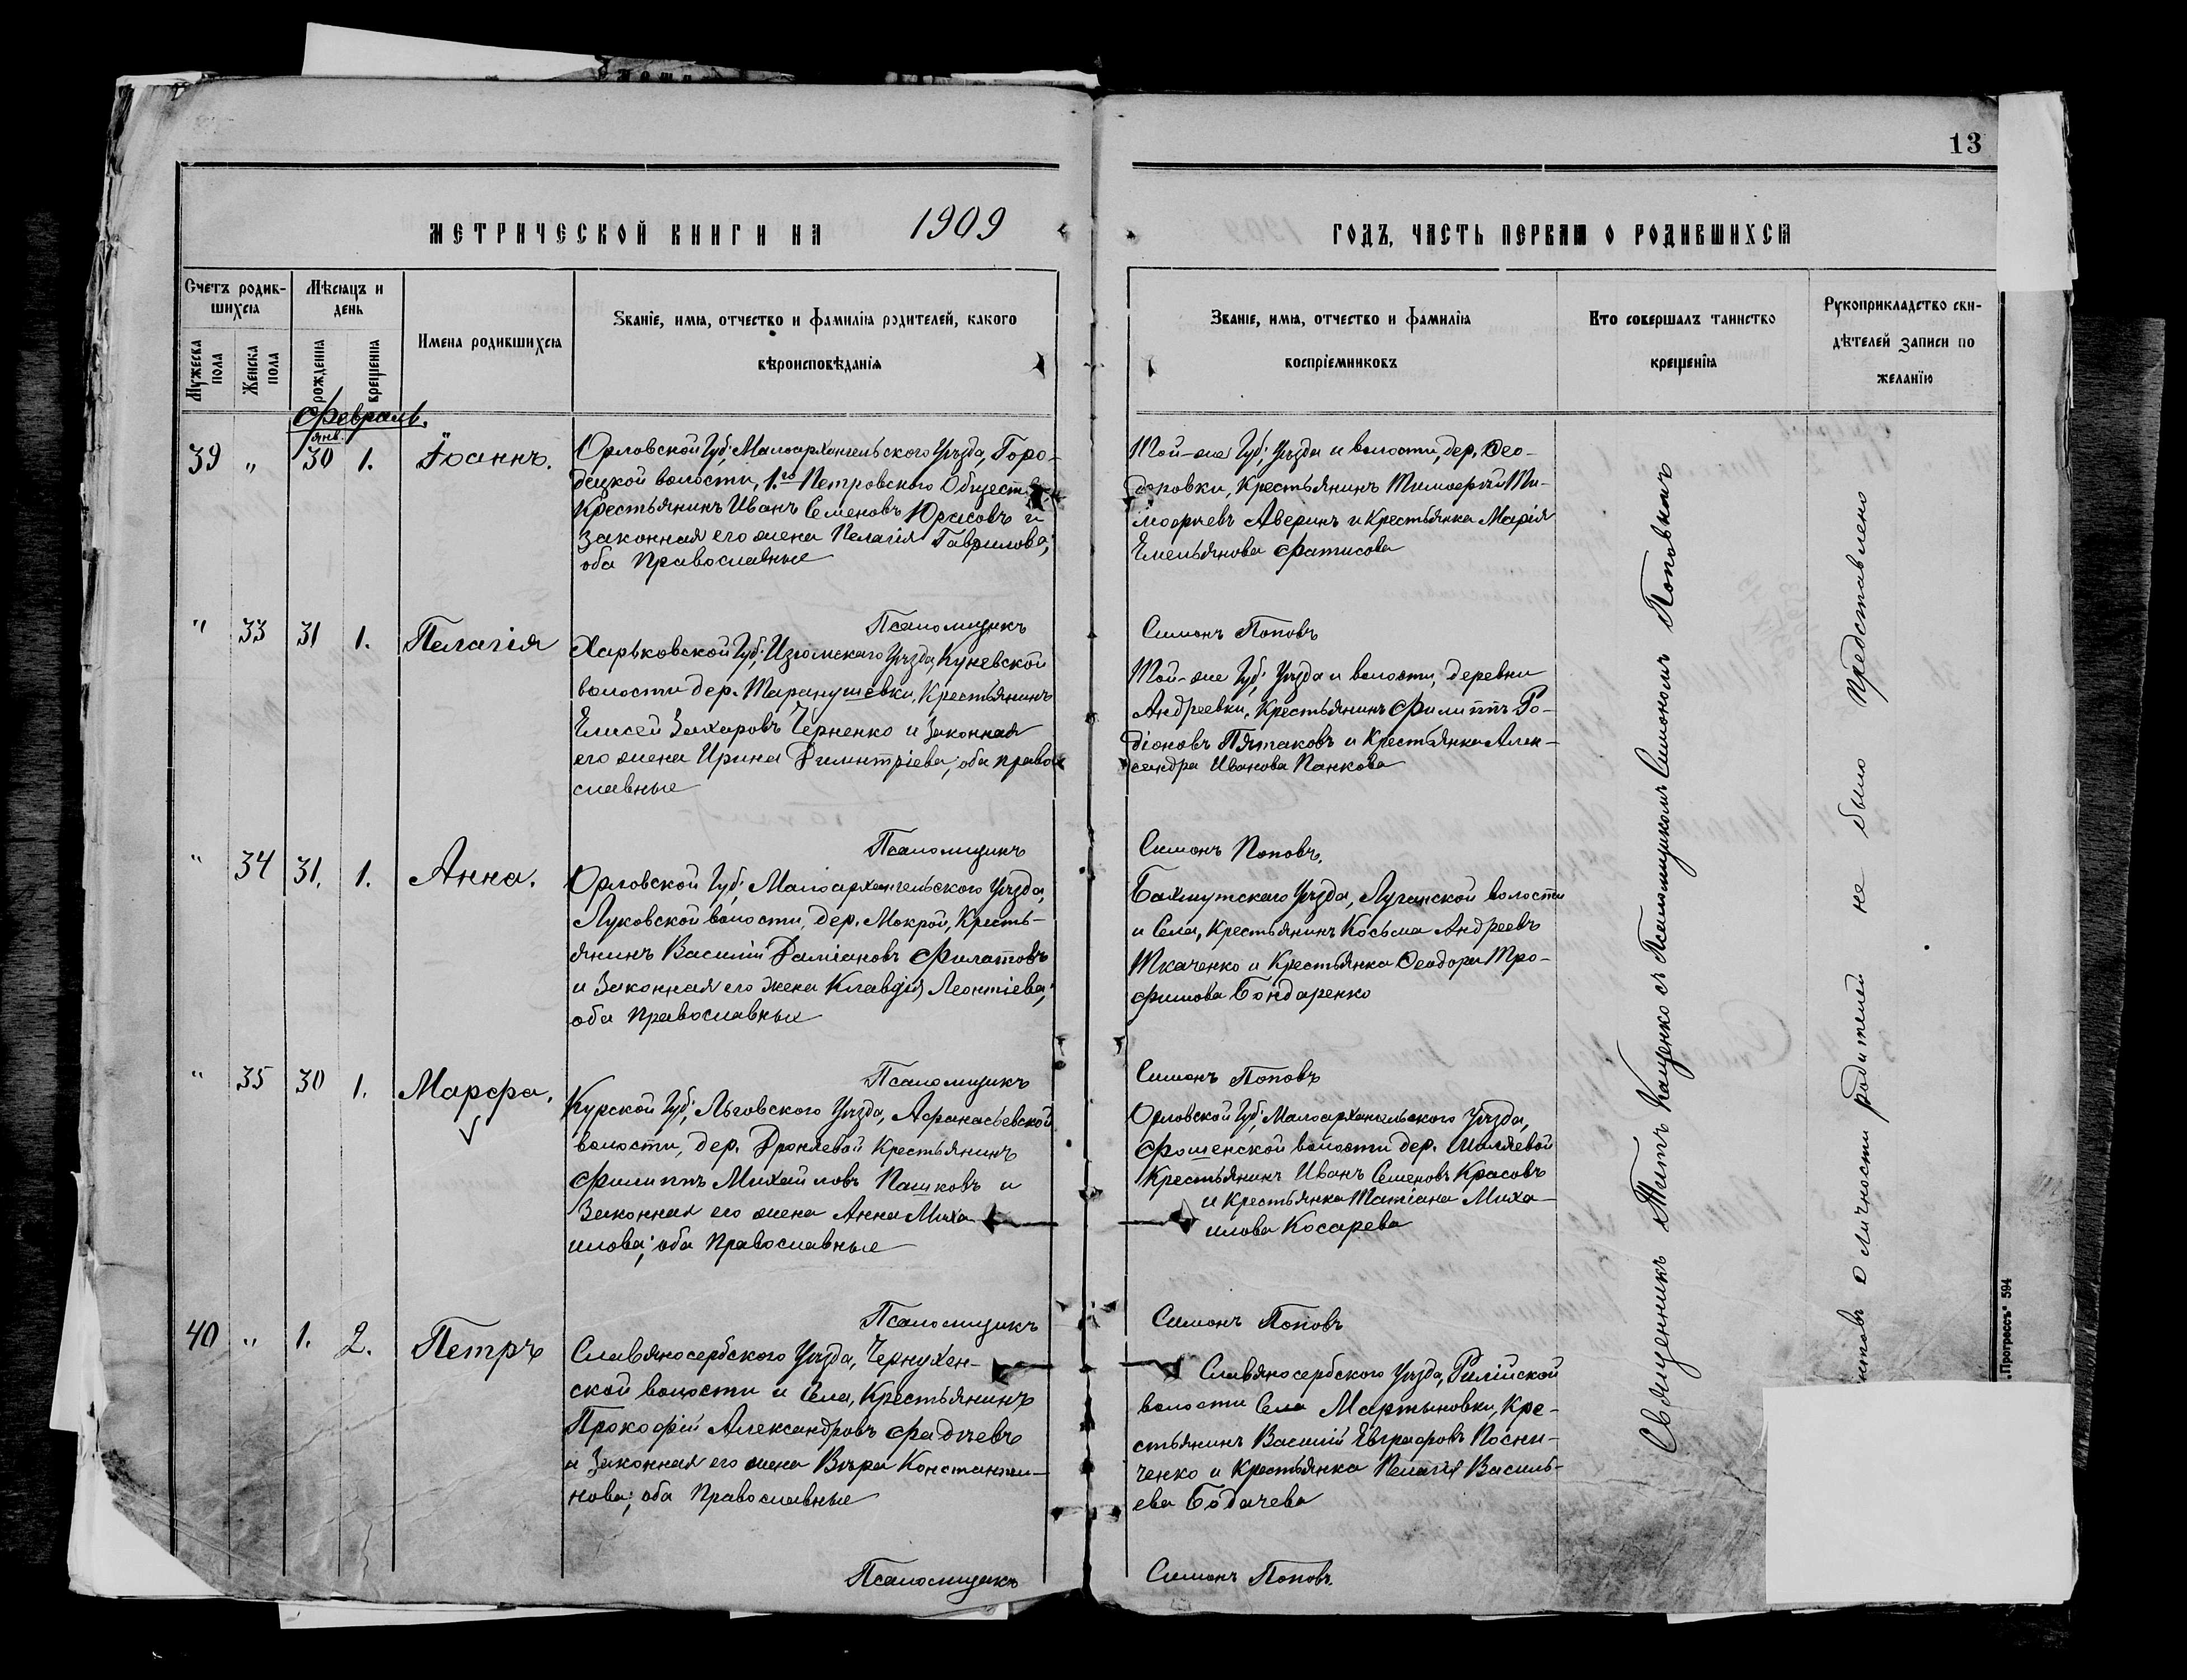 13
МЕТРИЧЕСКОЙ КНИГИ НА 1909
ГОДЪ, ЧАСТЬ ПЕРВАЯ О РОДИВШИХСЯ
Счетъ родив-
шихся
Мужеска пола
Женска пола
Мѣсяцъ и
день
рожденія
крещенія
Имена родившихся
Званіе, имя, отчество и фамилія родителей, какого
вѣроисповѣданія
Званіе, имя, отчество и фамилія
воспріемниковъ
Кто совершалъ таинство
крещенія
Рукоприкладство сви-
дѣтелей записи по
желанію
Февраль.
янв.
39 " 30 1. Іоаннъ.
Орловской Губ; Малоархангельского Уѣзда, Горо-
децкой волости, 1.го Петровского Обществ
Крестьянинъ Иванъ Семеновъ Юрасовъ и
Законная его жена Пелагія Гаврилова;
оба Православные
Той-же Губ; Уѣзда и волости, дер. Ѳео-
доровки, Крестьянинъ Тимофей Ти-
мофеевъ Аверинъ и Крестьянка Марія
Емельянова Фатисова
Псаломщикъ Симонъ Поповъ
" 33 31 1. Пелагія
Харьковской Губ; Изюмскаго Уѣзда, Куневской
волости дер. Таранушевки, Крестьянинъ
Елисей Захаровъ Черненко и Законная
его жена Ирина Димитріева; оба право
славные
Той-же Губ; Уѣзда и волости, деревни
Андреевки, Крестьянинъ Филиппъ Ро-
діоновъ Пятаковъ и Крестьянка Алек-
сандра Иванова Панкова
Псаломщикъ Симонъ Поповъ.
" 34 31. 1. Анна.
Орловской Губ; Малоархангельского Уѣзда,
Луковской волости, дер. Мокрой, Кресть-
янинъ Василій Даміановъ Филатовъ
и Законная его жена Клавдія Леонтіева;
оба Православные
Бахмутскаго Уѣзда, Луганской волости
и Села, Крестьянинъ Косьма Андреевъ
Ткаченко и Крестьянка Ѳеодора Тро-
фимова Бондаренко
Псаломщикъ Симонъ Поповъ
" 35 30 1. Марфа.
Курской Губ; Льговского Уѣзда, Афанасьевской
волости, дер. Дроняевой Крестьянинъ
Филиппъ Михайловъ Пашковъ и
Законная его жена Анна Миха
илова; оба Православные
Орловской Губ; Малоархангельского Уѣзда,
Фошенской волости дер. Шаляевой
Крестьянинъ Иванъ Семеновъ Красовъ
и Крестьянка Татіана Миха-
илова Косарева
Псаломщикъ Симонъ Поповъ
40 " 1. 2. Петръ
Славяносербского Уѣзда, Чернухен-
ской волости и Села, Крестьянинъ
Прокофій Александровъ Фадѣевъ
и Законная его жена Вѣра Константи-
нова; оба Православные
Славяносербского Уѣзда, Рилійской
волости Села Мартыновки, Кре-
стьянинъ Василій Евграфовъ Посни-
ченко и Крестьянка Пелагія Василь-
ева Бодачева
Псаломщикъ Симонъ Поповъ.
Священникъ Титъ Кащенко съ Псаломщикомъ Симономъ Поповымъ
о личности родителей не было представлено
„Прогрессъ“ 594